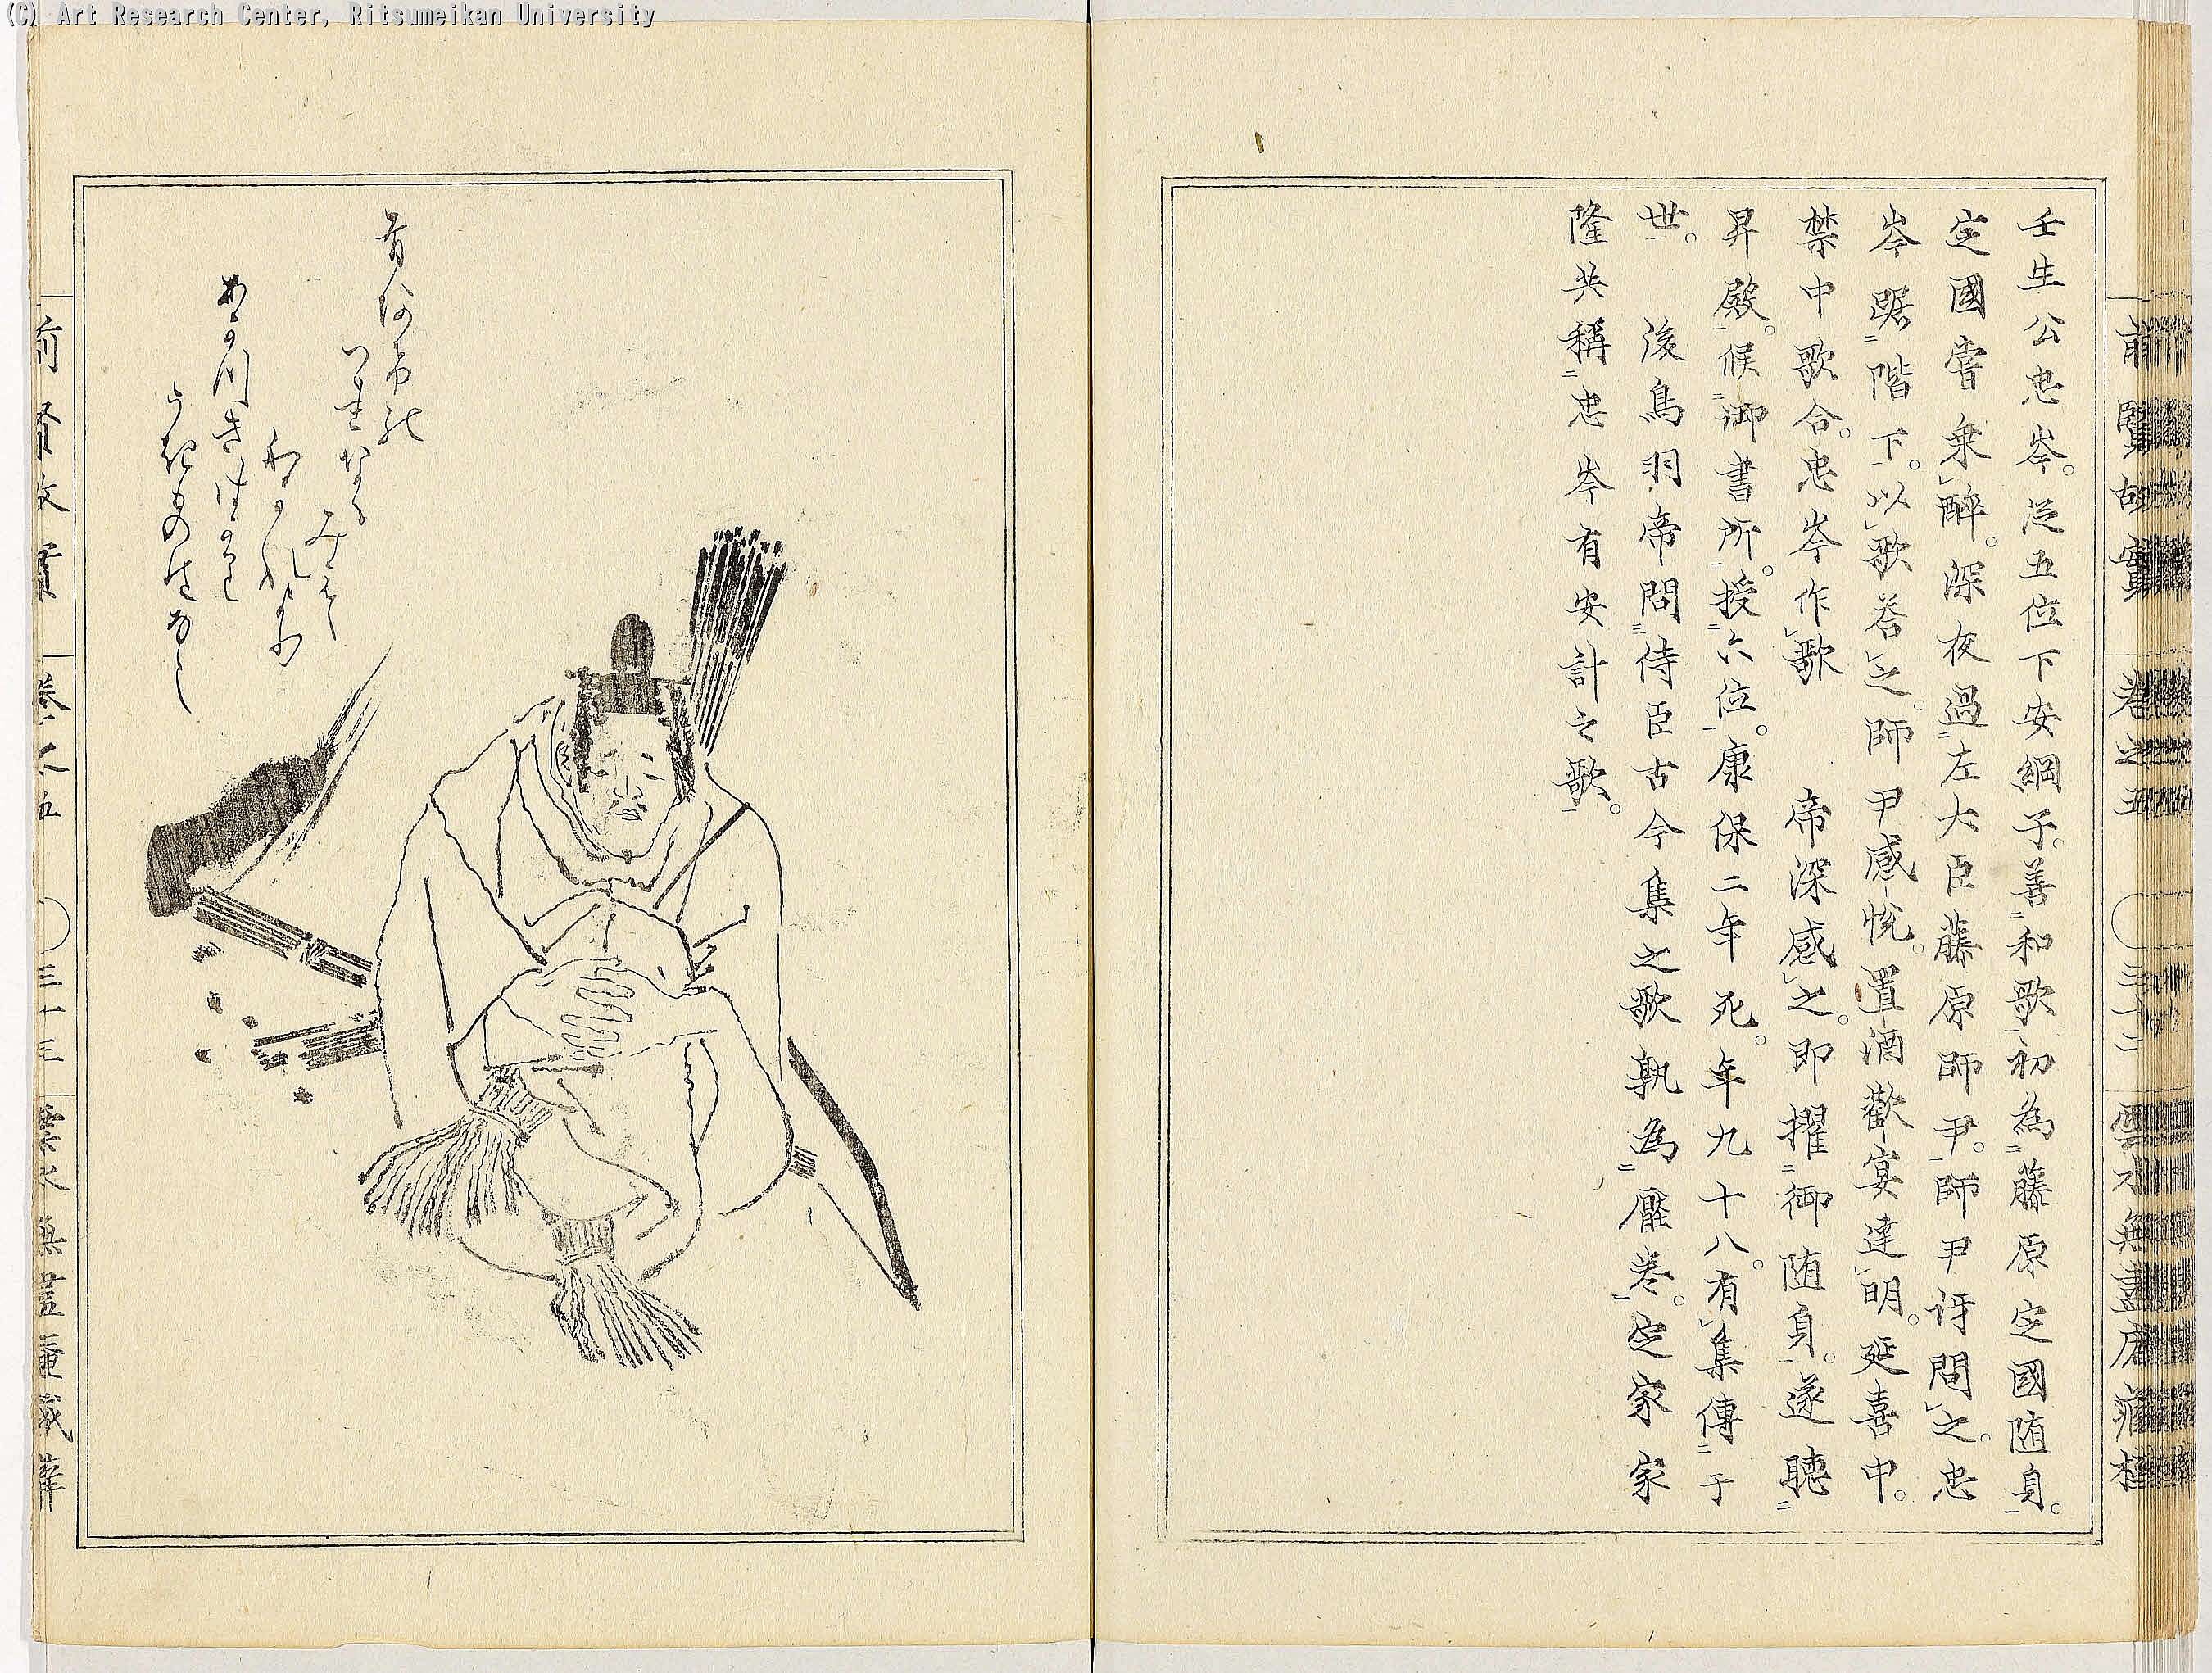 (C) Art Research Center, Ritsumeikan University
前賢故實 巻之五 三十二 雲水無盡庵蔵梓
壬生公忠岑。従五位下安綱子。善和歌。初為藤原定國随身。
定國嘗乗醉。深夜過左大臣藤原師尹。師尹訝問之。忠
岑踞階下。以歌答之。師尹感悦。置酒歡宴達明。延喜中。
禁中歌合。忠岑作歌 帝深感之。即擢御随身。遂聴
昇殿。候御書所。授六位。康保二年死。年九十八。有集傳于
世。 後鳥羽帝問侍臣古今集之歌孰為壓巻。定家家
隆共稱忠岑有安計之歌。
有明の
つれなく
みえし
わかれより
あか月はかり
うきものはなし
前賢故實 巻之五 三十三 雲水無盡庵蔵梓